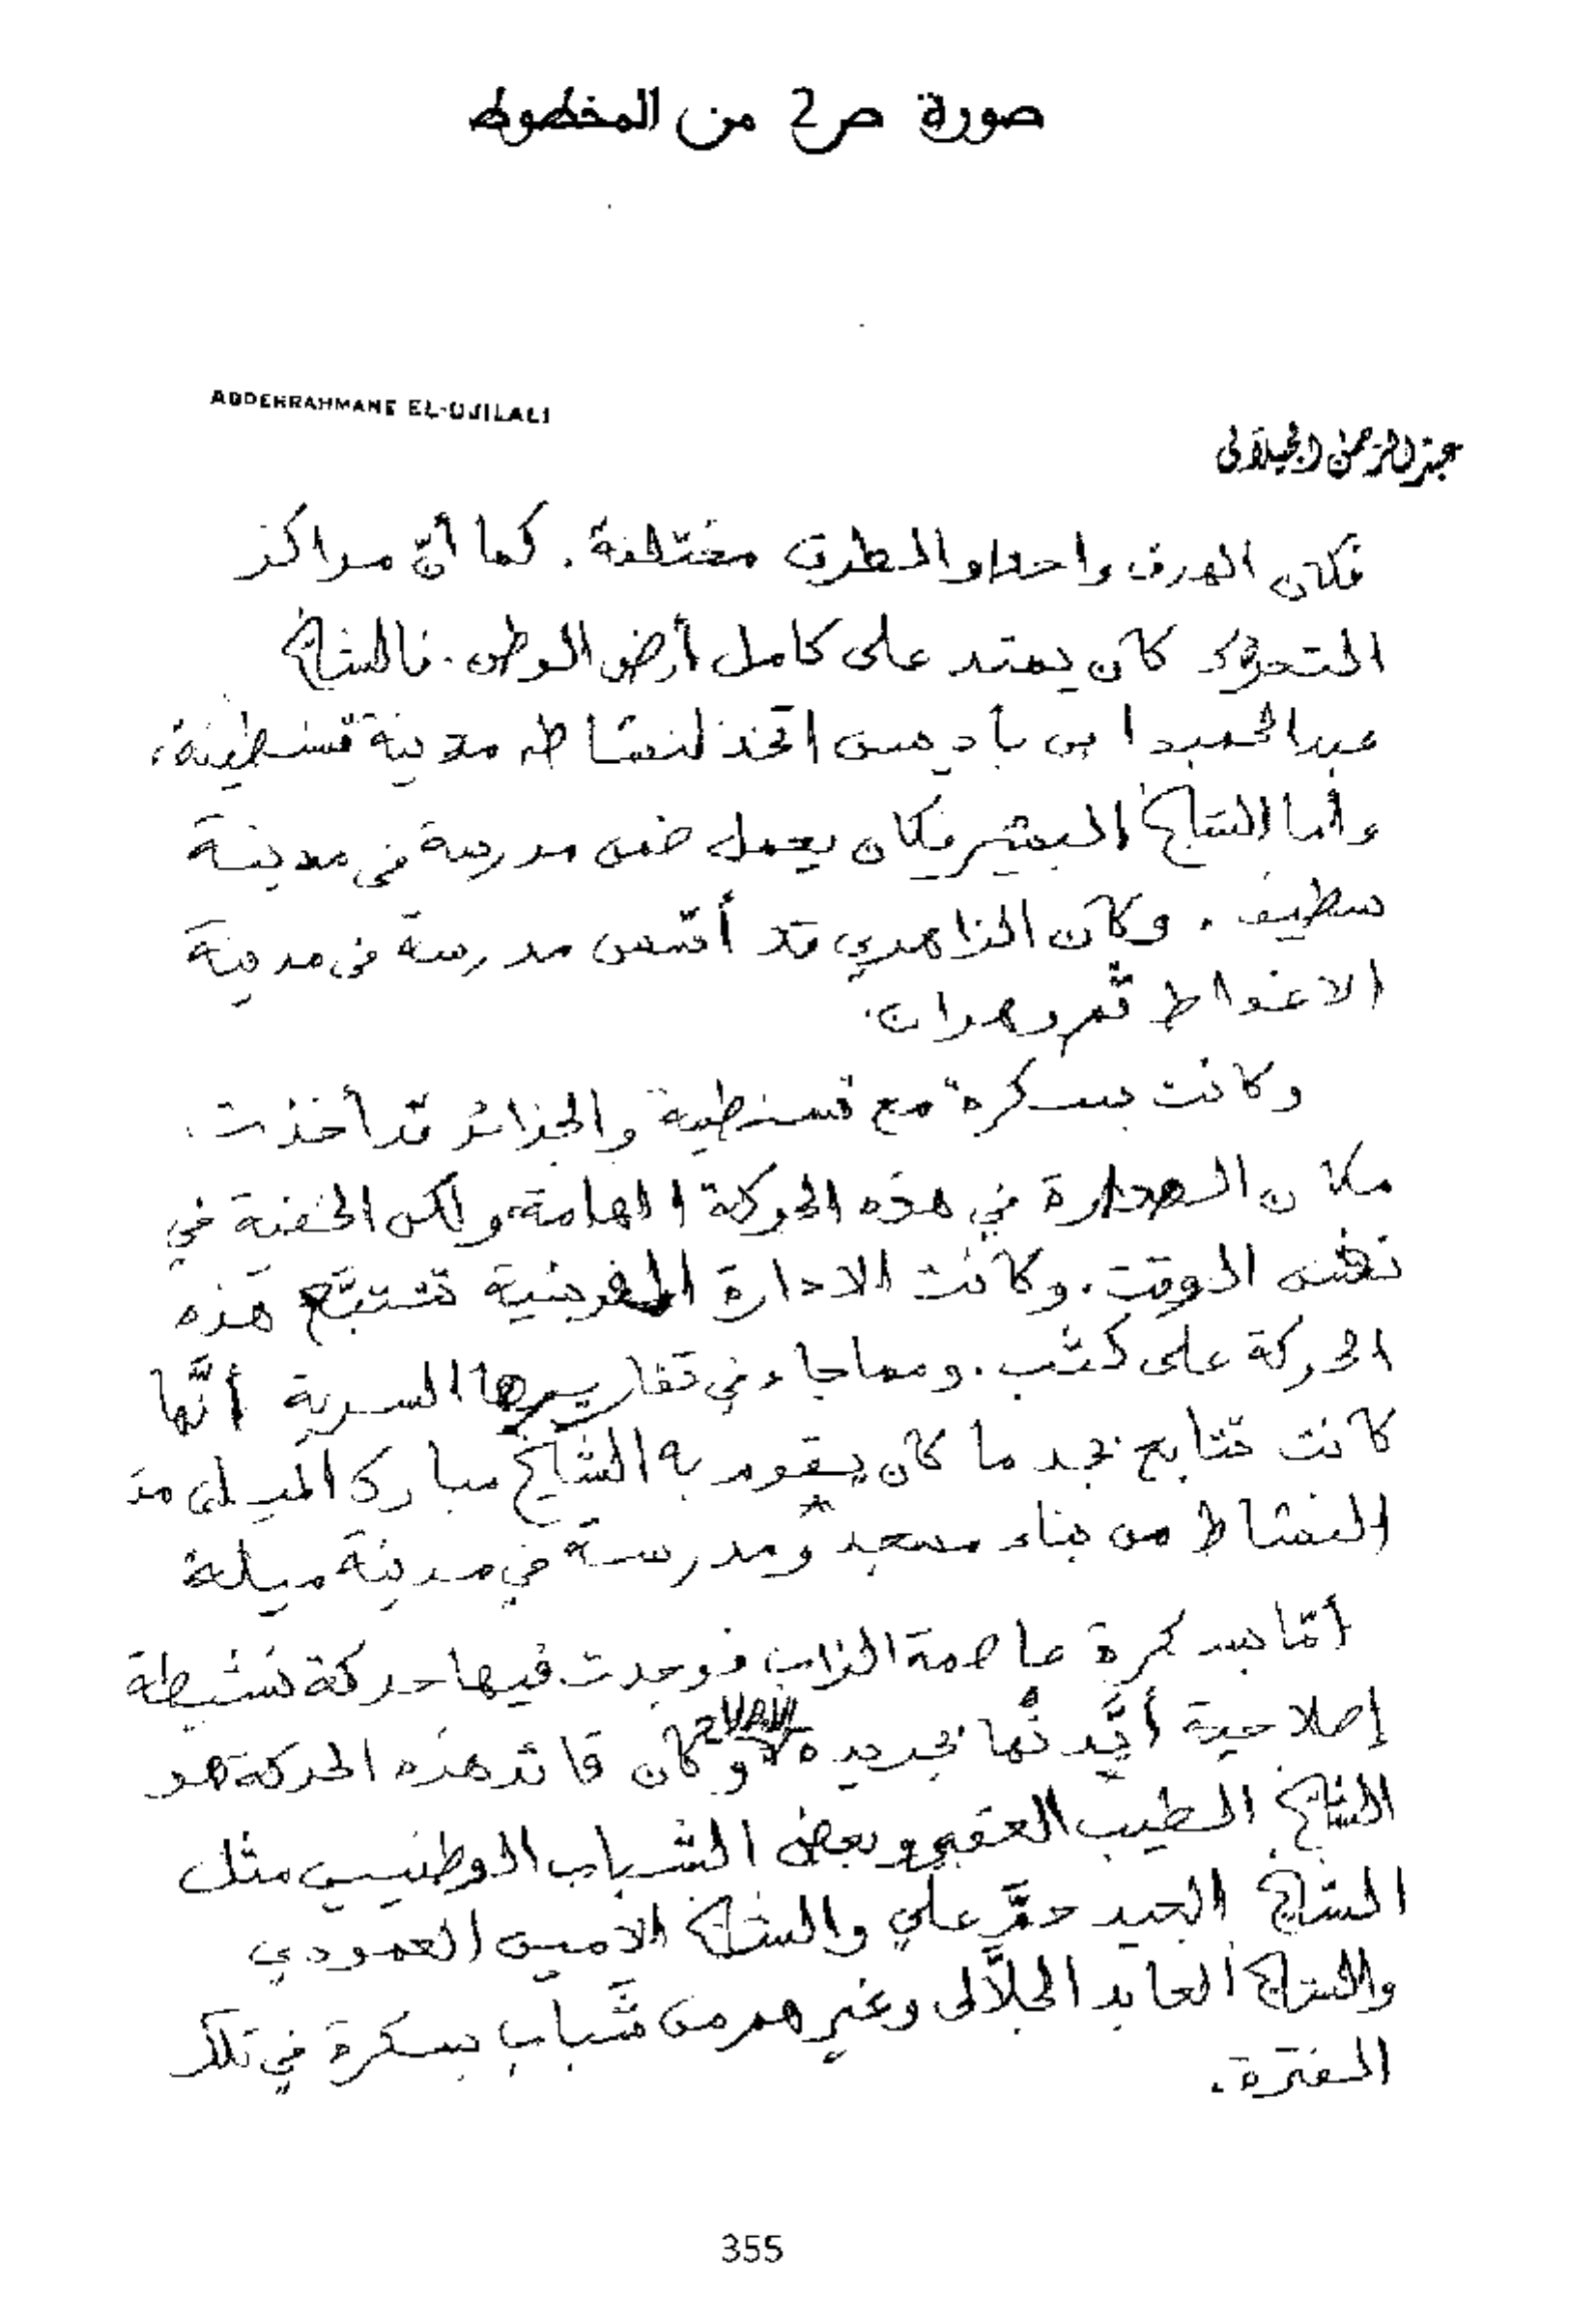 صورة ص2 من المخطوط
ABDERRAHMANE EL-DJILALI
عبد الرحمن الجيلالي
فكان الهدف واحدا والطرق مختلفة. كما أنّ مراكز
التحرّك كان يمتد على كامل أرض الوطن. فالشيخ
عبد الحميد ابن باديس اتخذ لنشاطه مدينة قسنطينة،
وأما الشيخ البشير فكان يعمل ضمن مدرسة في مدينة
سطيف. وكان الزاهري قد أسّس مدرسة في مدينة
الاغواط ثم وهران.
وكانت بسكرة مع قسنطينة والجزائر قد أخذت
مكان الصدارة في هذه الحركة الهامة ولكن الخفية في
نفس الوقت. وكانت الادارة الفرنسية تتتبّع هذه
الحركة على كثب. ومما جاء في تقاريرها السرية أنَّها
كانت تتابع بجد ما كان يقوم به الشيخ مبارك الميلي من
النشاط من بناء مسجد ومدرسة في مدينة ميلة
أمّا بسكرة عاصمة الزاب فوجدت فيها حركة نشيطة
إصلاحية أيَّدتها بجريدة وكان قائد هذه الحركة هو
الشيخ الطيب العقبي وبعض الشباب الوطنيين مثل
الشيخ العيد حمّ علي والشيخ الأمين العمودي
والشيخ العابد الجلّالي وغيرهم من شَباب بسكرة في تلك
الفترة.
355